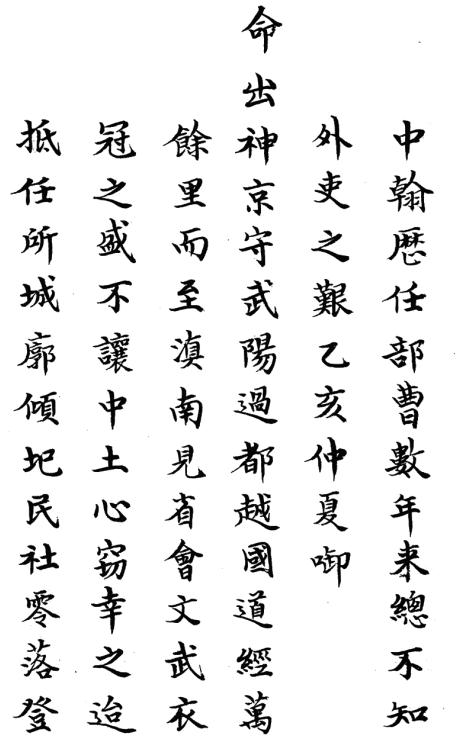 中翰歷任部曹數年来總不知
外吏之艱乙亥仲夏啣
命出神京守武陽過都越國道經萬
餘里而至滇南見省會文武衣
冠之盛不讓中土心窃幸之迨
抵任所城廓傾圮民社零落登